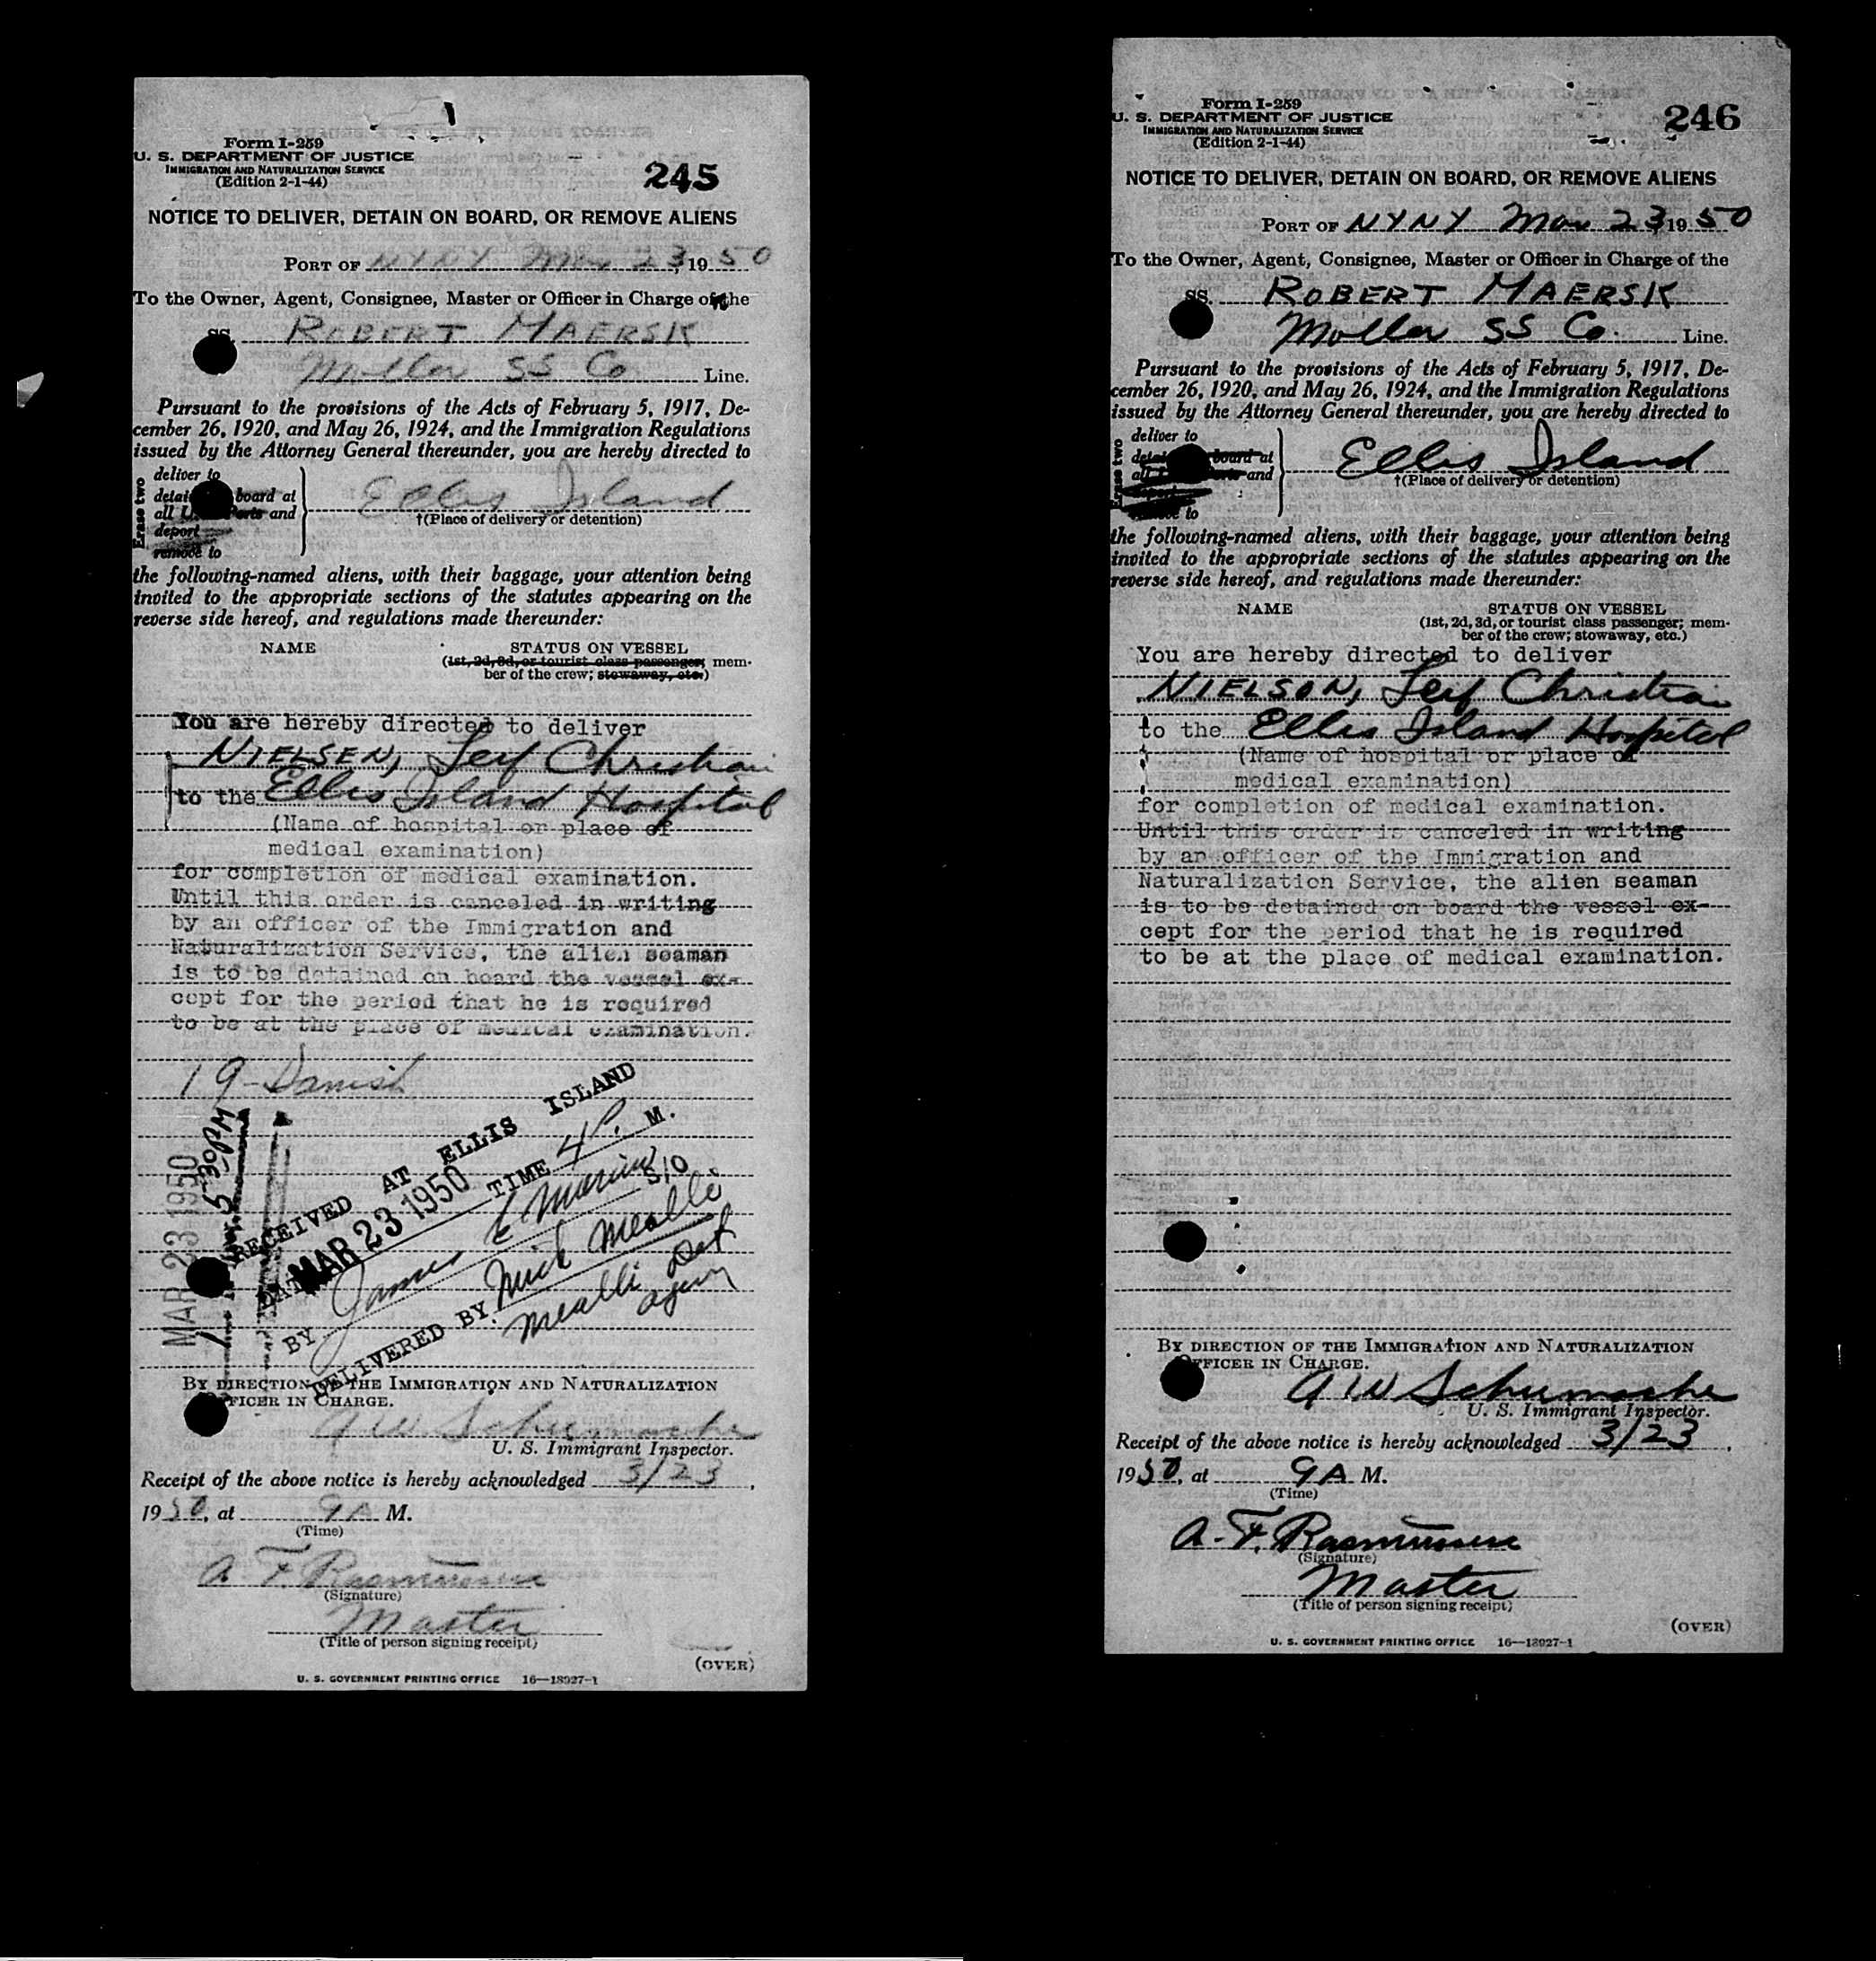 Form I-259
U. S. DEPARTMENT OF JUSTICE
IMMIGRATION AND NATURALIZATION SERVICE
(Edition 2-1-44)
245
NOTICE TO DELIVER, DETAIN ON BOARD, OR REMOVE ALIENS
PORT OF NYNY Mar 23, 1950
To the Owner, Agent, Consignee, Master or Officer in Charge of the
SS. ROBERT MAERSK
Moller SS Co Line.
Pursuant to the provisions of the Acts of February 5, 1917, De-
cember 26, 1920, and May 26, 1924, and the Immigration Regulations
issued by the Attorney General thereunder, you are hereby directed to
Erase two
deliver to
board at
all U. Ports and
deport
remove to
Ellis Island
†(Place of delivery or detention)
the following-named aliens, with their baggage, your attention being
invited to the appropriate sections of the statutes appearing on the
reverse side hereof, and regulations made thereunder:
NAME STATUS ON VESSEL
(1st, 2d, 3d, or tourist class passenger; mem-
ber of the crew; stowaway, etc.)
You are hereby directed to deliver
NIELSEN, Leif Christian
to the Ellis Island Hospital
(Name of hospital or place of
medical examination)
for completion of medical examination.
Until this order is canceled in writing
by an officer of the Immigration and
Naturalization Service, the alien seaman
is to be detained on board the vessel ex-
cept for the period that he is required
to be at the place of medical examination.
19-Danish
MAR 23 1950
5-30PM
RECEIVED AT ELLIS ISLAND
DATE MAR 23 1950 TIME 4 P. M.
BY James E
DELIVERED BY Nick Mealli
Mealli Det
By DIRECTION OF THE IMMIGRATION AND NATURALIZATION
OFFICER IN CHARGE.
A W Schumacher
U. S. Immigrant Inspector.
Receipt of the above notice is hereby acknowledged 3/23,
1950, at 9 A M.
(Time)
A. F. Rasmussen
(Signature)
Master
(Title of person signing receipt)
(OVER)
U. S. GOVERNMENT PRINTING OFFICE 16—18927-1
Form I-259
U. S. DEPARTMENT OF JUSTICE
IMMIGRATION AND NATURALIZATION SERVICE
(Edition 2-1-44)
246
NOTICE TO DELIVER, DETAIN ON BOARD, OR REMOVE ALIENS
PORT OF NYNY Mar 23, 1950
To the Owner, Agent, Consignee, Master or Officer in Charge of the
SS. ROBERT MAERSK
Moller SS Co. Line.
Pursuant to the provisions of the Acts of February 5, 1917, De-
cember 26, 1920, and May 26, 1924, and the Immigration Regulations
issued by the Attorney General thereunder, you are hereby directed to
Erase two
deliver to
board at
all and
to
Ellis Island
†(Place of delivery or detention)
the following-named aliens, with their baggage, your attention being
invited to the appropriate sections of the statutes appearing on the
reverse side hereof, and regulations made thereunder:
NAME STATUS ON VESSEL
(1st, 2d, 3d, or tourist class passenger; mem-
ber of the crew; stowaway, etc.)
You are hereby directed to deliver
NIELSON, Leif Christian
to the Ellis Island Hospital
(Name of hospital or place of
medical examination)
for completion of medical examination.
Until this order is canceled in writing
by an officer of the Immigration and
Naturalization Service, the alien seaman
is to be detained on board the vessel ex-
cept for the period that he is required
to be at the place of medical examination.
BY DIRECTION OF THE IMMIGRATION AND NATURALIZATION
OFFICER IN CHARGE.
A W Schumacher
U. S. Immigrant Inspector.
Receipt of the above notice is hereby acknowledged 3/23,
1950, at 9 A M.
(Time)
A. F. Rasmussen
(Signature)
Master
(Title of person signing receipt)
(OVER)
U. S. GOVERNMENT PRINTING OFFICE 16—18927-1